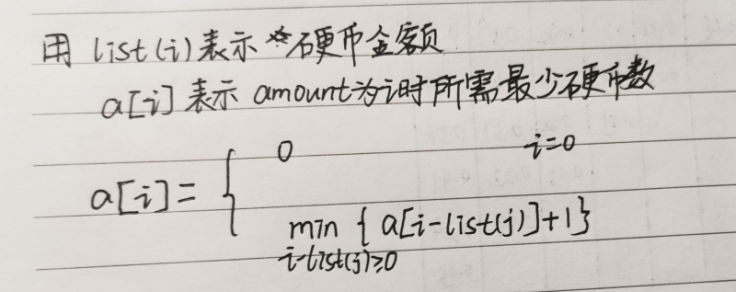 用 list(i)表示 硬币金额
a[i] 表示 amount为i时所需最少硬币数
a[i] = { 0 i=0
min { a[i-list(j)]+1}
i-list(j)≥0